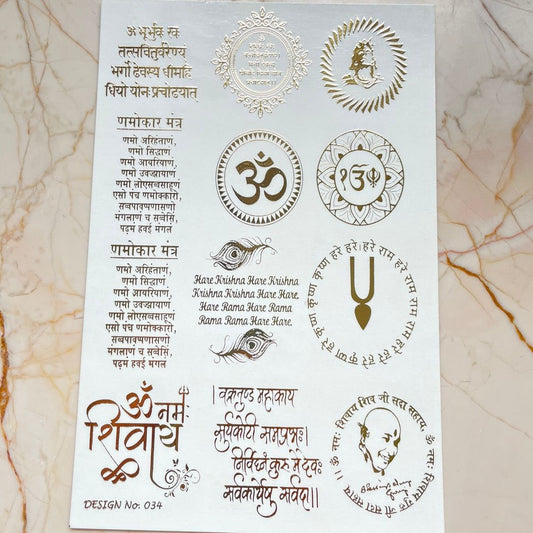 ॐ भूर्भुवः स्वः
तत्सवितुर्वरेण्यं
भर्गो देवस्य धीमहि
धियो योनः प्रचोदयात्
णमोकार मंत्र
णमो अरिहंताणं,
णमो सिद्धाणं
णमो आयरियाणं,
णमो उवज्झायाणं
णमो लोएसव्वसाहूणं
एसो पंच णमोक्कारो,
सव्वपावप्पणासणो
मंगलाणं च सव्वेसिं,
पढ़मं हवई मंगलं
णमोकार मंत्र
णमो अरिहंताणं,
णमो सिद्धाणं
णमो आयरियाणं,
णमो उवज्झायाणं
णमो लोएसव्वसाहूणं
एसो पंच णमोक्कारो,
सव्वपावप्पणासणो
मंगलाणं च सव्वेसिं,
पढ़मं हवई मंगलं
ॐ
Hare Krishna Hare Krishna
Krishna Krishna Hare Hare,
Hare Rama Hare Rama
Rama Rama Hare Hare.
हरे राम हरे राम राम राम हरे हरे कृष्ण हरे कृष्ण कृष्ण कृष्ण हरे हरे
ॐ नमः
शिवाय
। वक्रतुण्ड महाकाय
सुर्यकोटी समप्रभः।
निर्विघ्नं कुरु मे देवः
सर्वकार्येषु सर्वदा।।
ॐ नमः शिवाय शिव जी सदा सहाय, ॐ नमः शिवाय गुरु जी सदा सहाय ।।
DESIGN No: 034